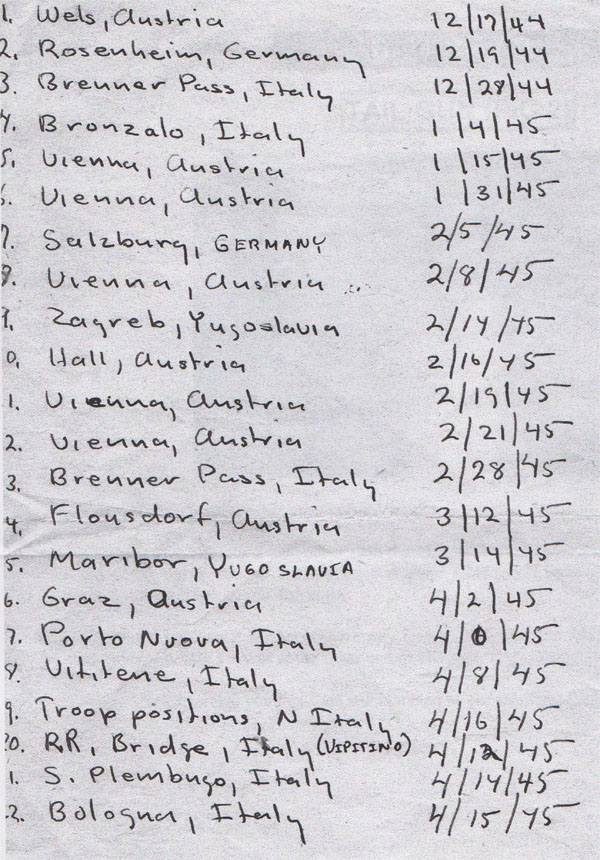 1. Wels, Austria 12/17/44
2. Rosenheim, Germany 12/19/44
3. Brenner Pass, Italy 12/28/44
4. Bronzalo, Italy 1/4/45
5. Vienna, Austria 1/15/45
6. Vienna, Austria 1/31/45
7. Salzburg, GERMANY 2/5/45
8. Vienna, Austria 2/8/45
9. Zagreb, Yugoslavia 2/14/45
0. Hall, Austria 2/16/45
1. Vienna, Austria 2/19/45
2. Vienna, Austria 2/21/45
3. Brenner Pass, Italy 2/28/45
4. Flousdorf, Austria 3/12/45
5. Maribor, YUGOSLAVIA 3/14/45
6. Graz, Austria 4/2/45
7. Porto Nuova, Italy 4/6/45
8. Vititene, Italy 4/8/45
9. Troop positions, N Italy 4/16/45
20. RR. Bridge, Italy (VIPITINO) 4/12/45
1. S. Plembugo, Italy 4/14/45
2. Bologna, Italy 4/15/45